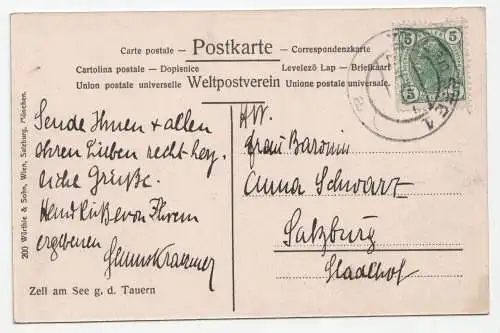 Postkarte
Carte postale – – Correspondenzkarte
Cartolina postale – Dopisnice
Levelező Lap – Briefkaart
Union postale universelle Weltpostverein Unione postale universale.
5 5
5 5
Sende Ihnen + allen
Ihren Lieben recht herz
liche Grüße.
Handküße von Ihrem
ergebenen
Zell am See g. d. Tauern
200 Würthle & Sohn, Wien, Salzburg, München.
Frau Baronin
Anna Schwarz
Salzburg